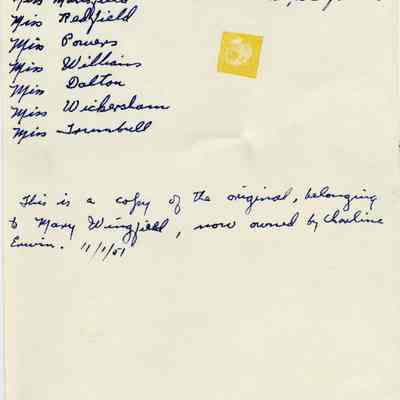 Miss Mansfield
Miss Redfield
Miss Powers
Miss Williams
Miss Dalton
Miss Wickersham
Miss Trumbull
This is a copy of the original, belonging
to Mary Wingfield, now owned by Charline
Erwin. 11/1/51